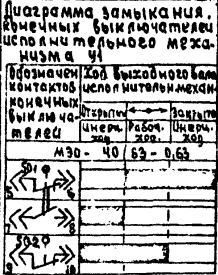 Диаграмма замыкания
конечных выключателей
исполнительного меха-
низма У1
Обозначен
контактов
конечных
выключа-
телей
Ход выходного вала
исполнительн.механ
Открыто
Закрыто
Инерц.
ход
Рабоч.
ход.
Инерц.
ход
МЭО - 40/63 - 0,63
SQ1
5
6
7
8
SQ2
9
10